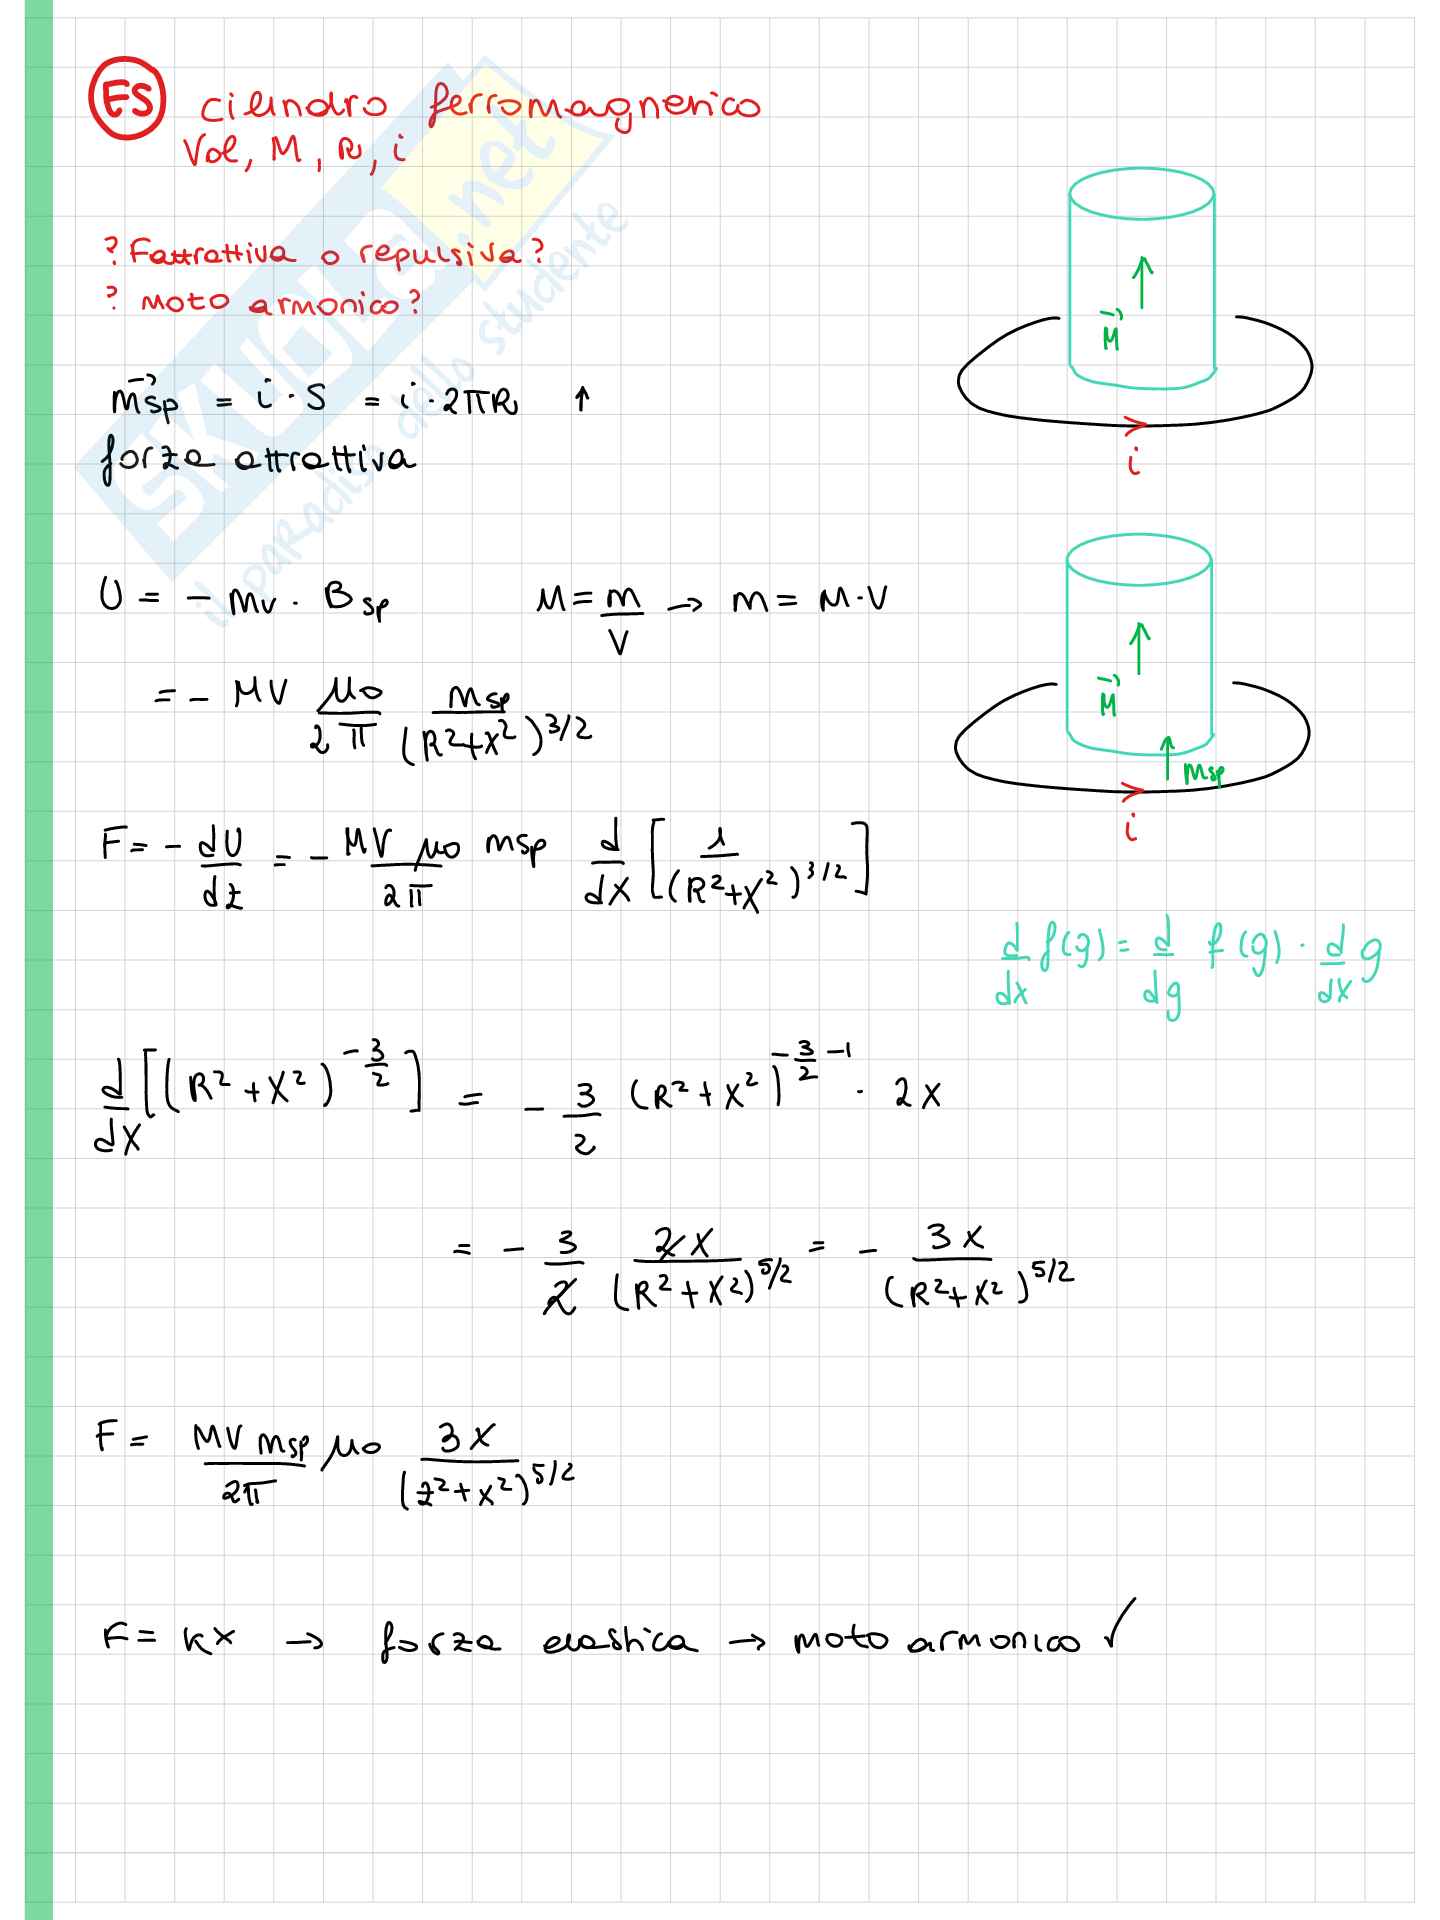 ES cilindro ferromagnetico
Vol, M, R, i
? Fattrattiva o repulsiva?
? moto armonico?
M⃗
i
m⃗sp = i · S = i · 2πR ↑
forza attrattiva
U = - mv · Bsp    M = m/V → m = M·V
= - MV μo/2π msp/(R²+x²)^3/2
M⃗
msp
i
F = - dU/dz = - MV μo/2π msp d/dx [1/(R²+x²)^3/2]
d/dx f(g) = d/dg f(g) · d/dx g
d/dx [(R²+x²)^-3/2] = - 3/2 (R²+x²)^-3/2 -1 · 2x
= - 3/2 2x/(R²+x²)^5/2 = - 3x/(R²+x²)^5/2
F = MV msp/2π μo 3x/(z²+x²)^5/2
F = kx → forza elastica → moto armonico ✓
SKUOLA.net
il paradiso dello studente